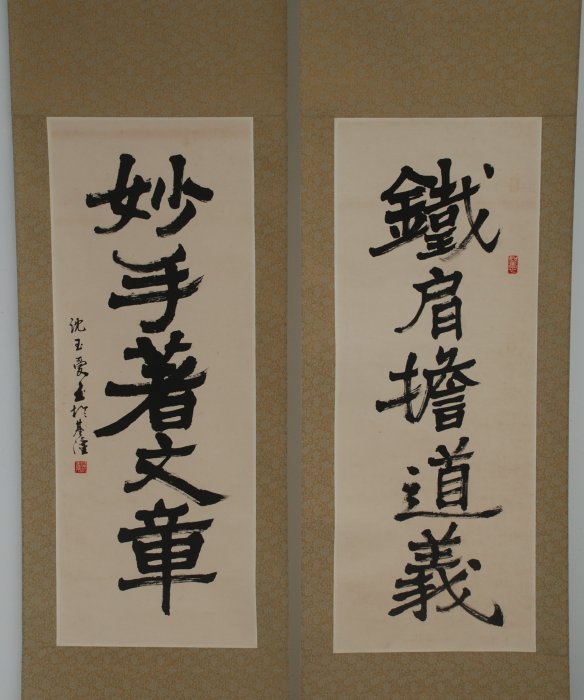 鐵肩擔道義
妙手著文章
沈玉愛書於基隆